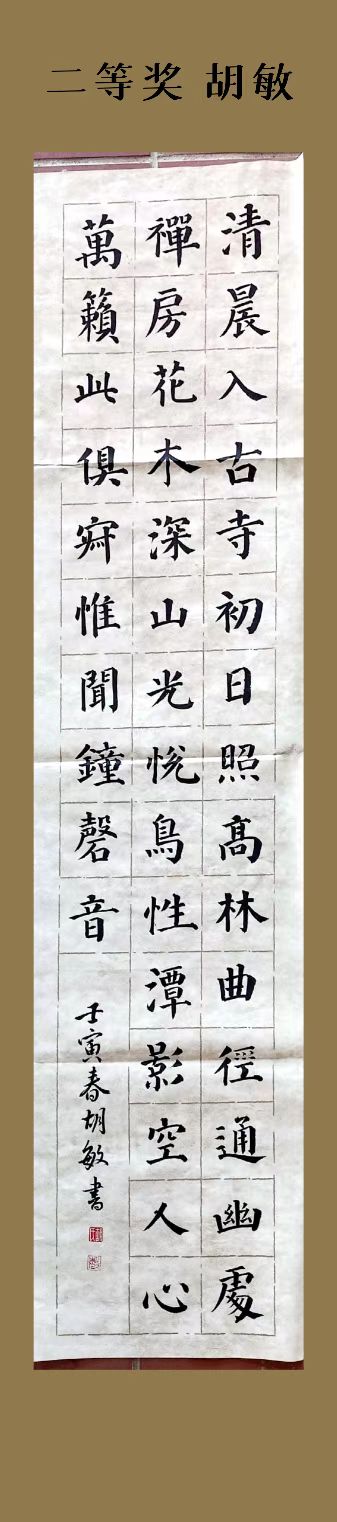 二等奖 胡敏
清晨入古寺初日照高林曲径通幽處
禪房花木深山光悅鳥性潭影空人心
萬籟此俱寂惟聞鐘磬音
壬寅春胡敏書